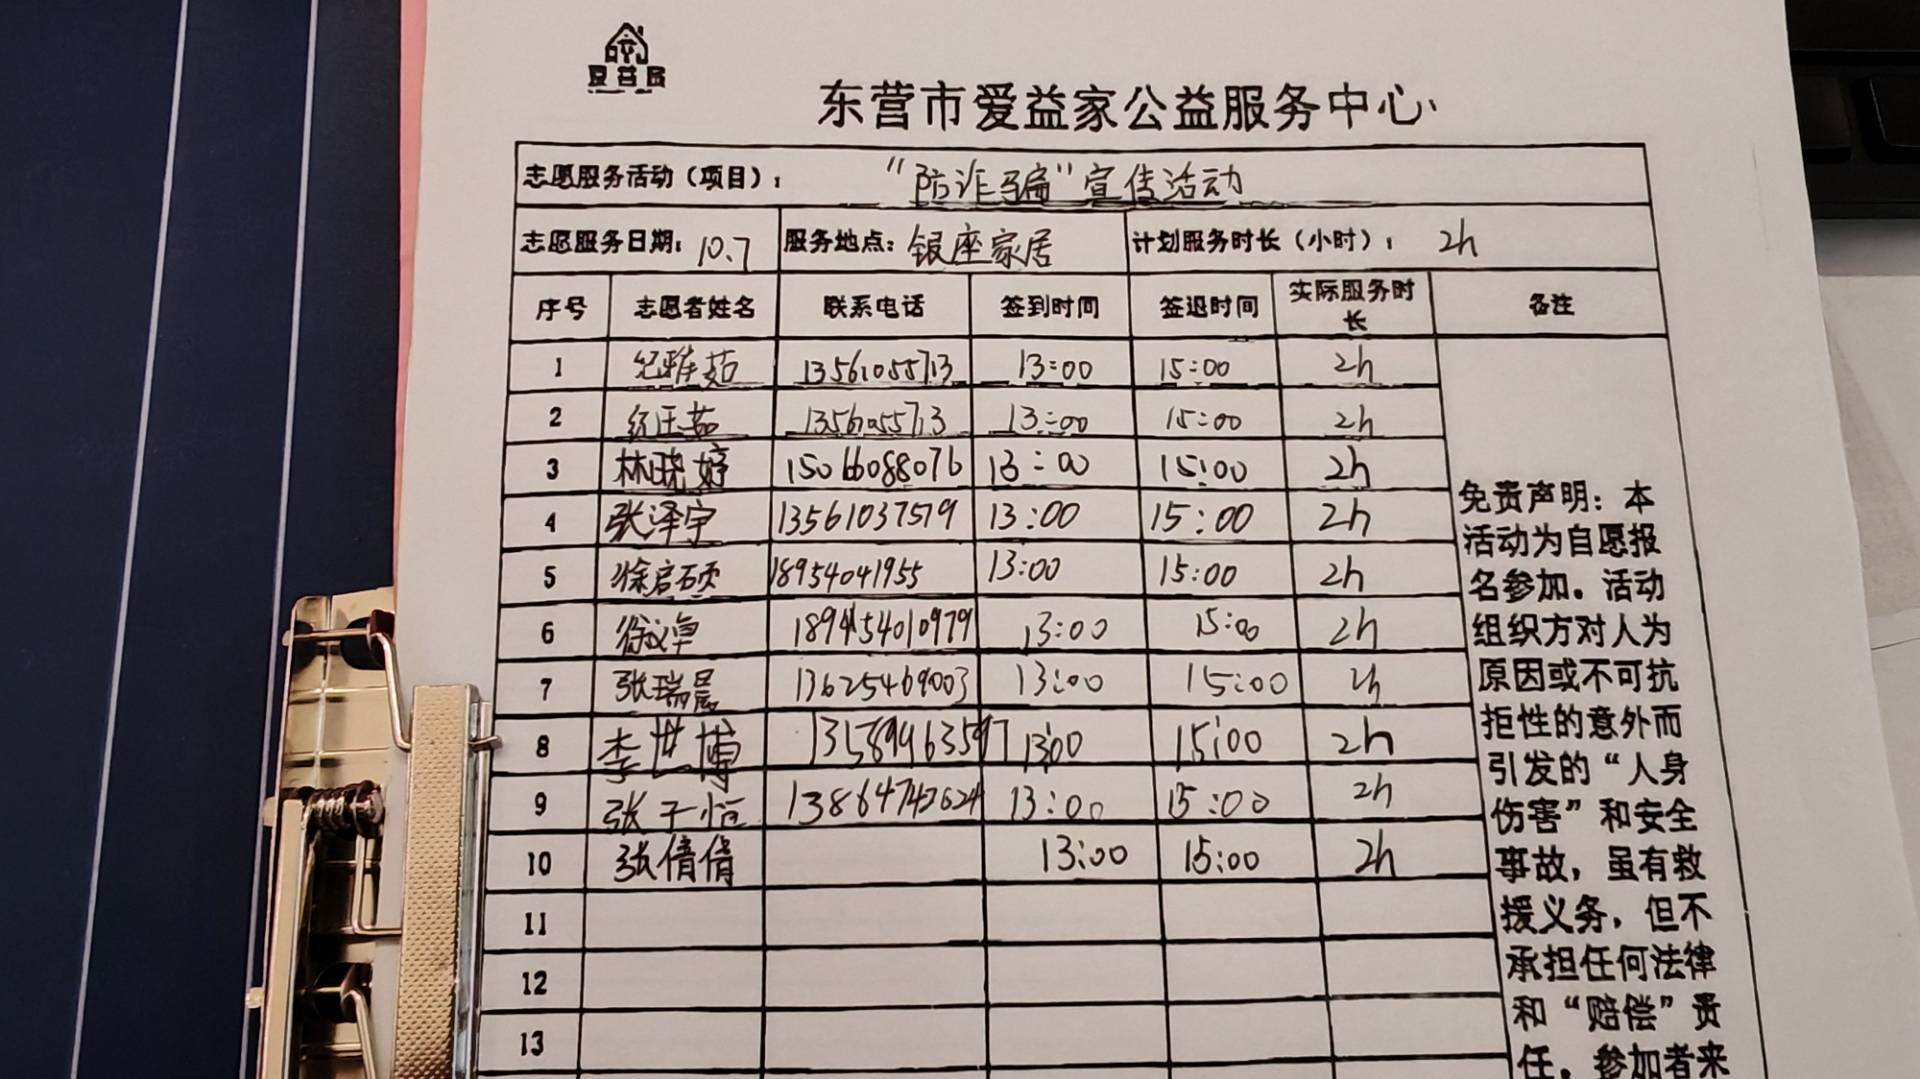 爱益家
东营市爱益家公益服务中心
志愿服务活动（项目）： “防诈骗”宣传活动
志愿服务日期：10.7 服务地点：银座家居 计划服务时长（小时）： 2h
序号 志愿者姓名 联系电话 签到时间 签退时间 实际服务时长 备注
1 纪雅茹 13561055713 13:00 15:00 2h
2 纪玉茹 13561055713 13:00 15:00 2h
3 林晓婷 15066088076 13:00 15:00 2h
4 张泽宇 13561037579 13:00 15:00 2h
5 徐启硕 18954041955 13:00 15:00 2h
6 徐义卓 13:00 15:00 2h
7 张瑞晨 13625469003 13:00 15:00 2h
8 李世博 13589463597 13:00 15:00 2h
9 张子恒 13864743624 13:00 15:00 2h
10 张倩倩 13:00 15:00 2h
11
12
13
免责声明：本
活动为自愿报
名参加。活动
组织方对人为
原因或不可抗
拒性的意外而
引发的“人身
伤害”和安全
事故，虽有救
援义务，但不
承担任何法律
和“赔偿”责
任。参加者来